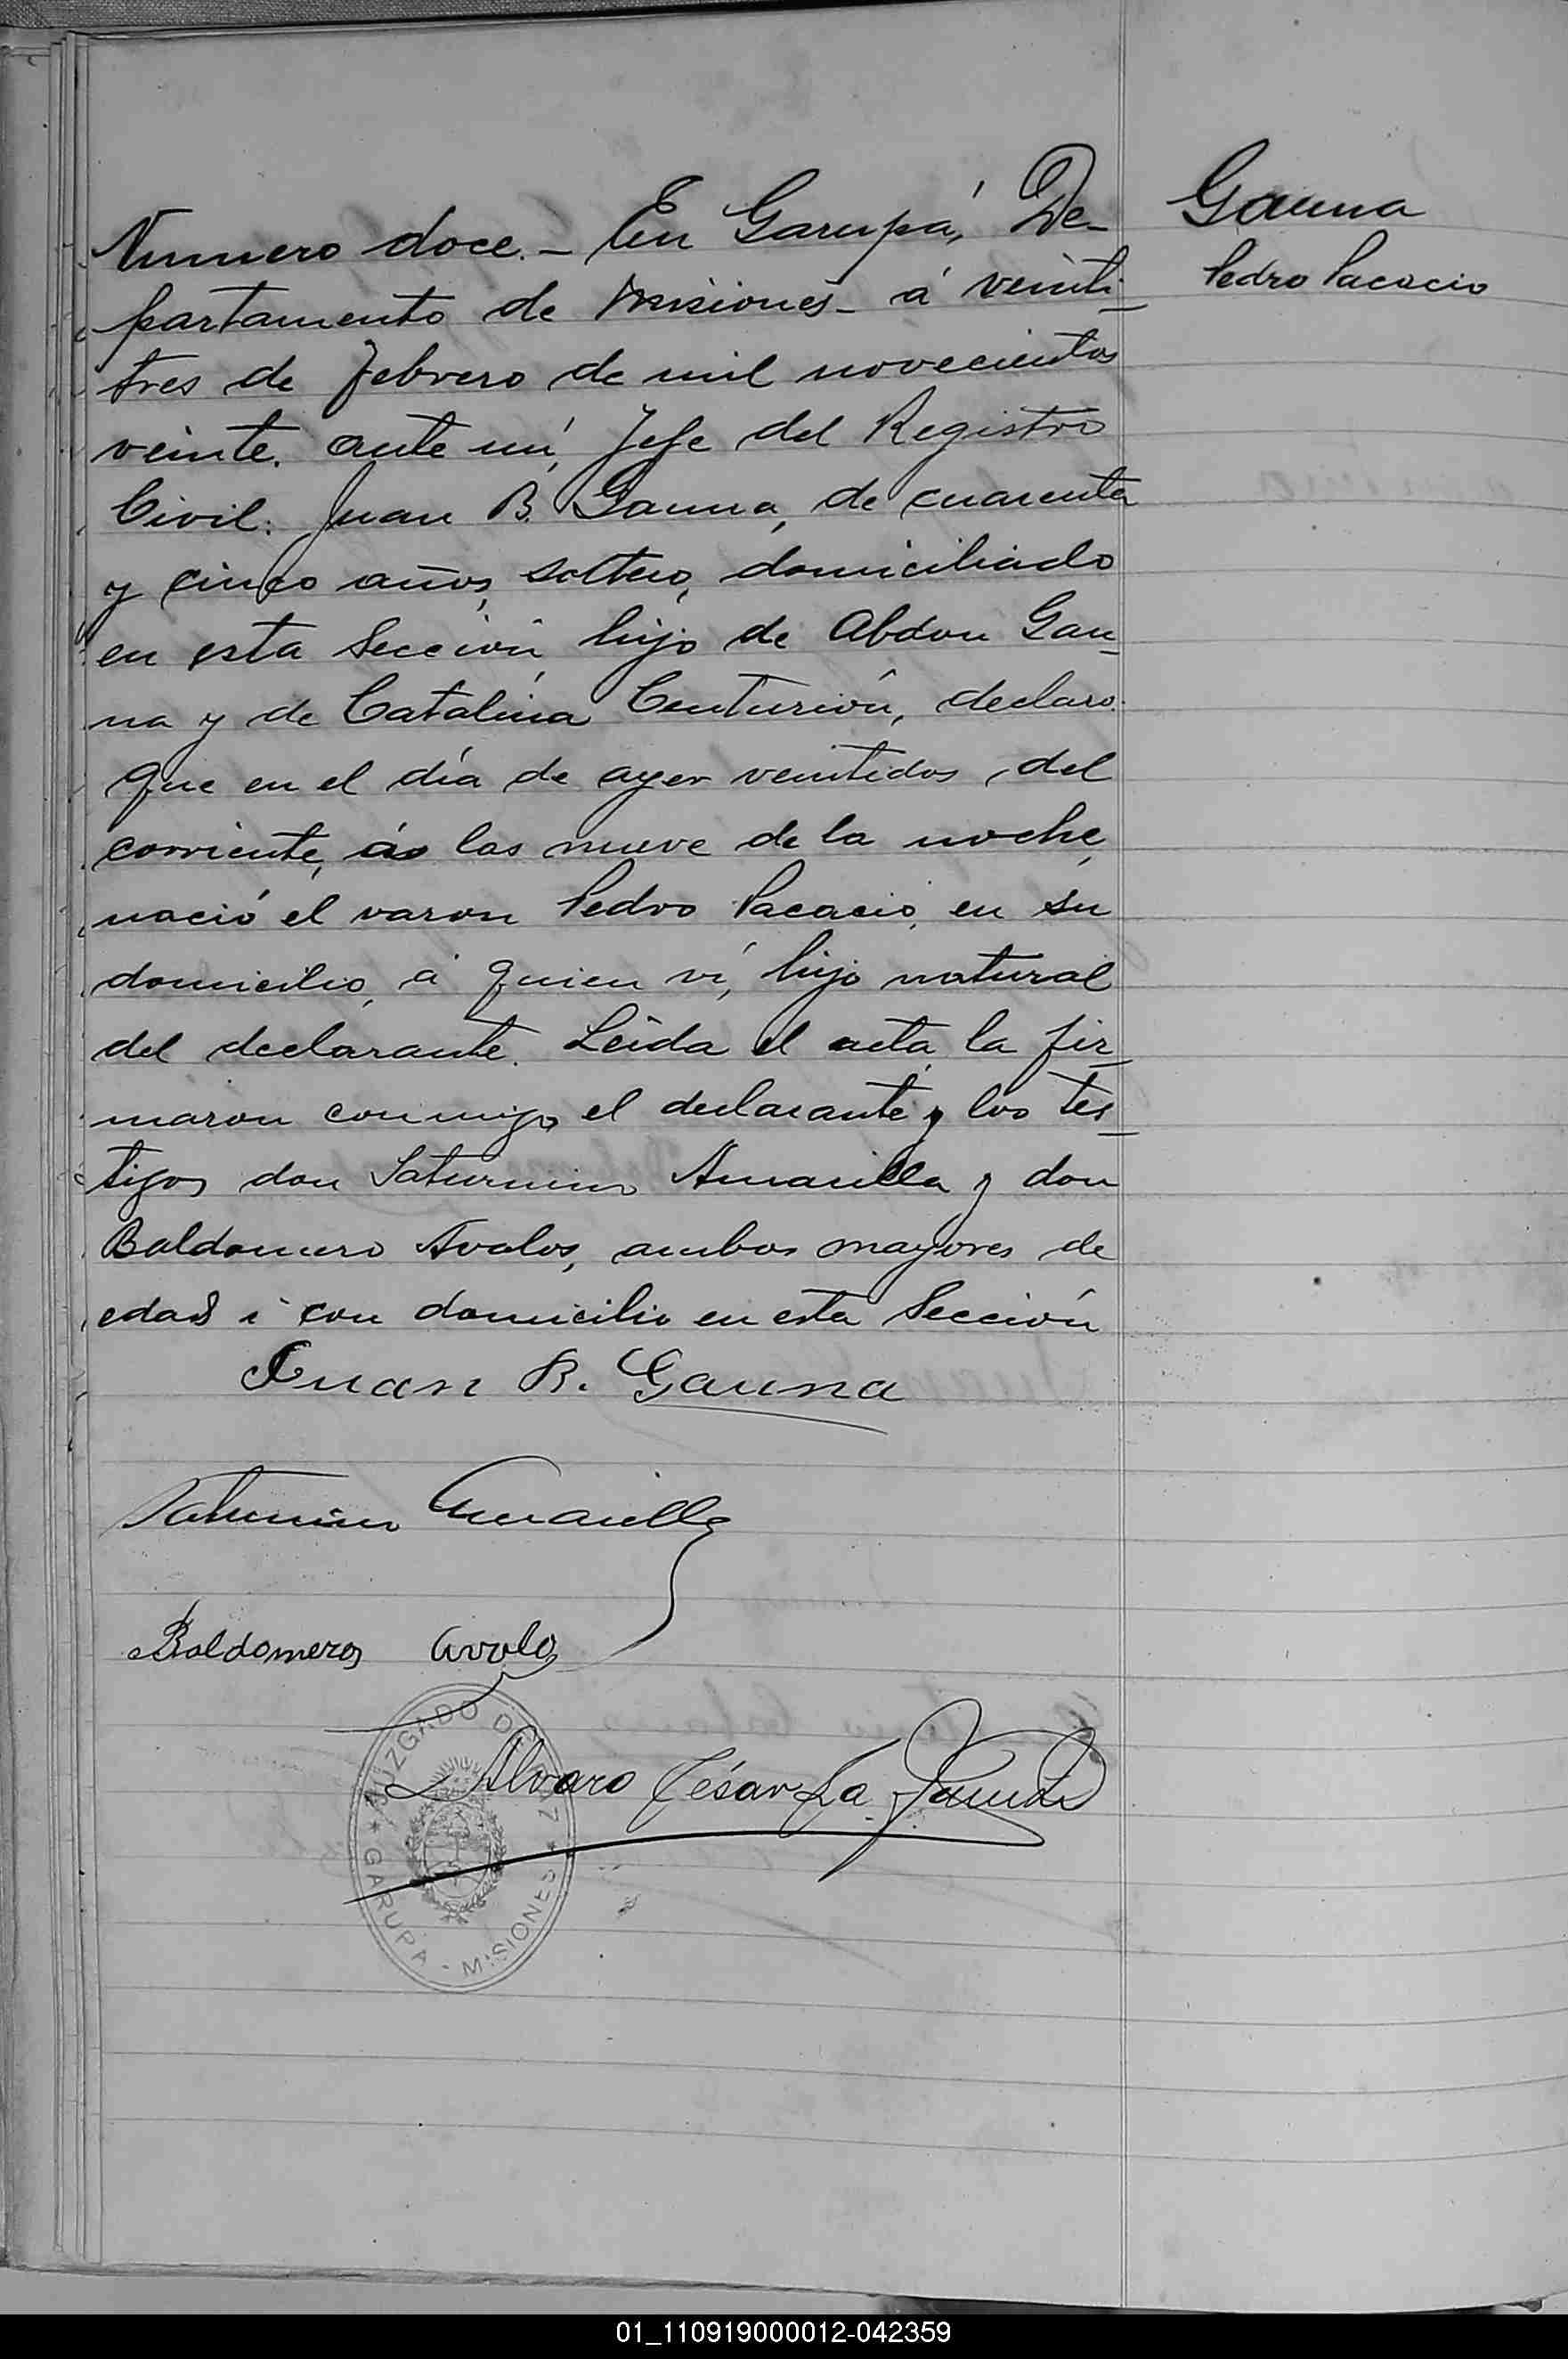 Numero doce.- En Garupá, De-
partamento de Misiones- á veinti-
tres de febrero de mil novecientos
veinte. ante mí, Jefe del Registro
Civil: Juan B. Gauna, de cuarenta
y cinco años, soltero, domiciliado
en esta Sección, hijo de Abdon Gau-
na y de Catalina Centurión, declaro:
que en el día de ayer veintidos, del
corriente, ás las nueve de la noche,
nació el varon Pedro Pacacio, en su
domicilio, á quien ví, hijo natural
del declarante. Leida el acta, la fir-
maron conmigo, el declarante y los tes-
tigos don Saturnino Amarilla y don
Baldomero Avalos, ambos mayores de
edad i con domicilio en esta Sección
Juan B. Gauna
Saturnino Amarilla
Baldomero Avalos
Alvaro César La
JUZGADO DE PAZ
GARUPA - MISIONES
Gauna
Pedro Pacacio
01_110919000012-042359